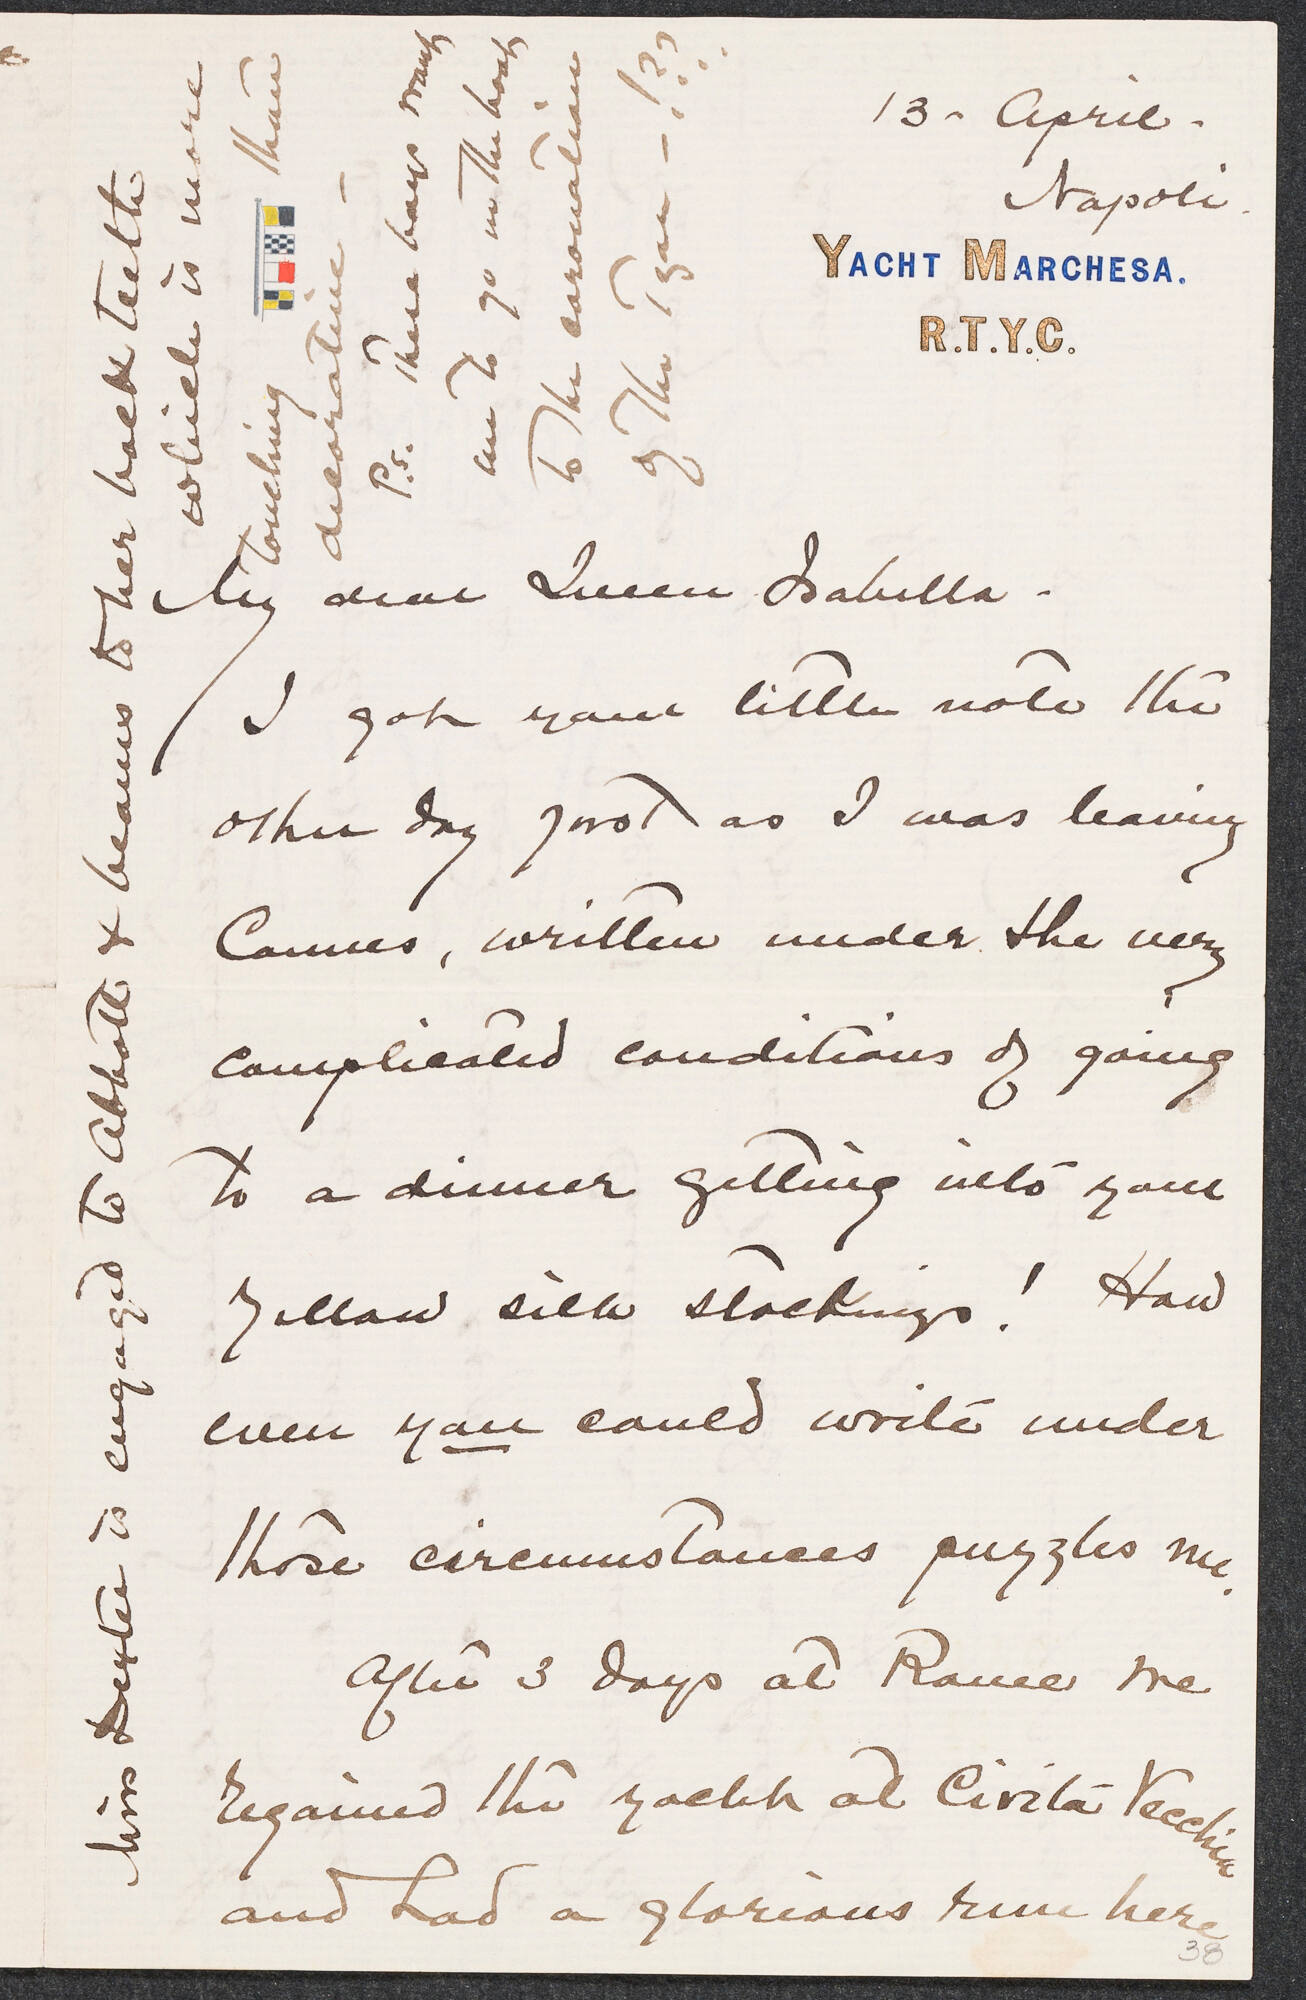 13 - April -
Napoli.
YACHT MARCHESA.
R.T.Y.C.
My dear Queen Isabella -
I got your little note the
other day just as I was leaving
Cannes, written under the very
complicated conditions of going
to a dinner getting into your
yellow silk stockings! How
even you could write under
those circumstances puzzles me.
After 3 days at Rome we
regained the yacht at Civita Vecchia
and had a glorious run here
38
Miss Dexter is engaged to Abbott & beams to her back teeth
which is more
touching than
decorative -
P.S. These boys want
me to go in the boat
to the coronation
of the Tzar - !??